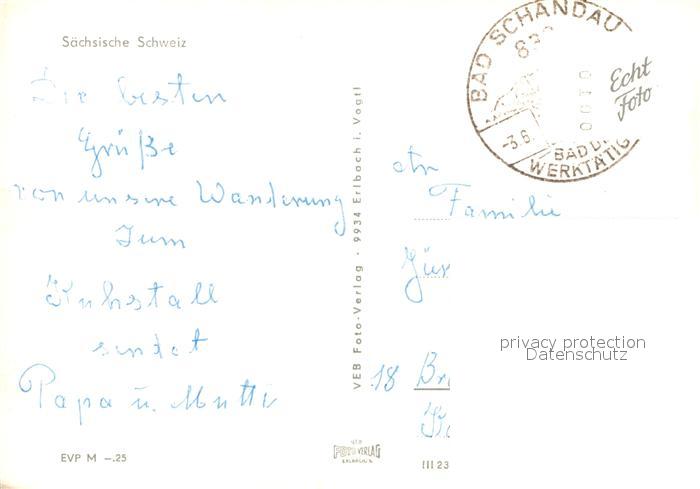 Sächsische Schweiz
Die besten
Grüße
von unsere Wanderung
zum
Kuhstall
sendet
Papa u. Mutti
EVP M –.25
VEB Foto-Verlag · 9934 Erlbach i. Vogtl
BAD SCHANDAU
-3.6.
BAD D.
WERKTÄTIG
Echt
Foto
An
Familie
18
privacy protection
Datenschutz
VEB
FOTO VERLAG
ERLBACH
III 23